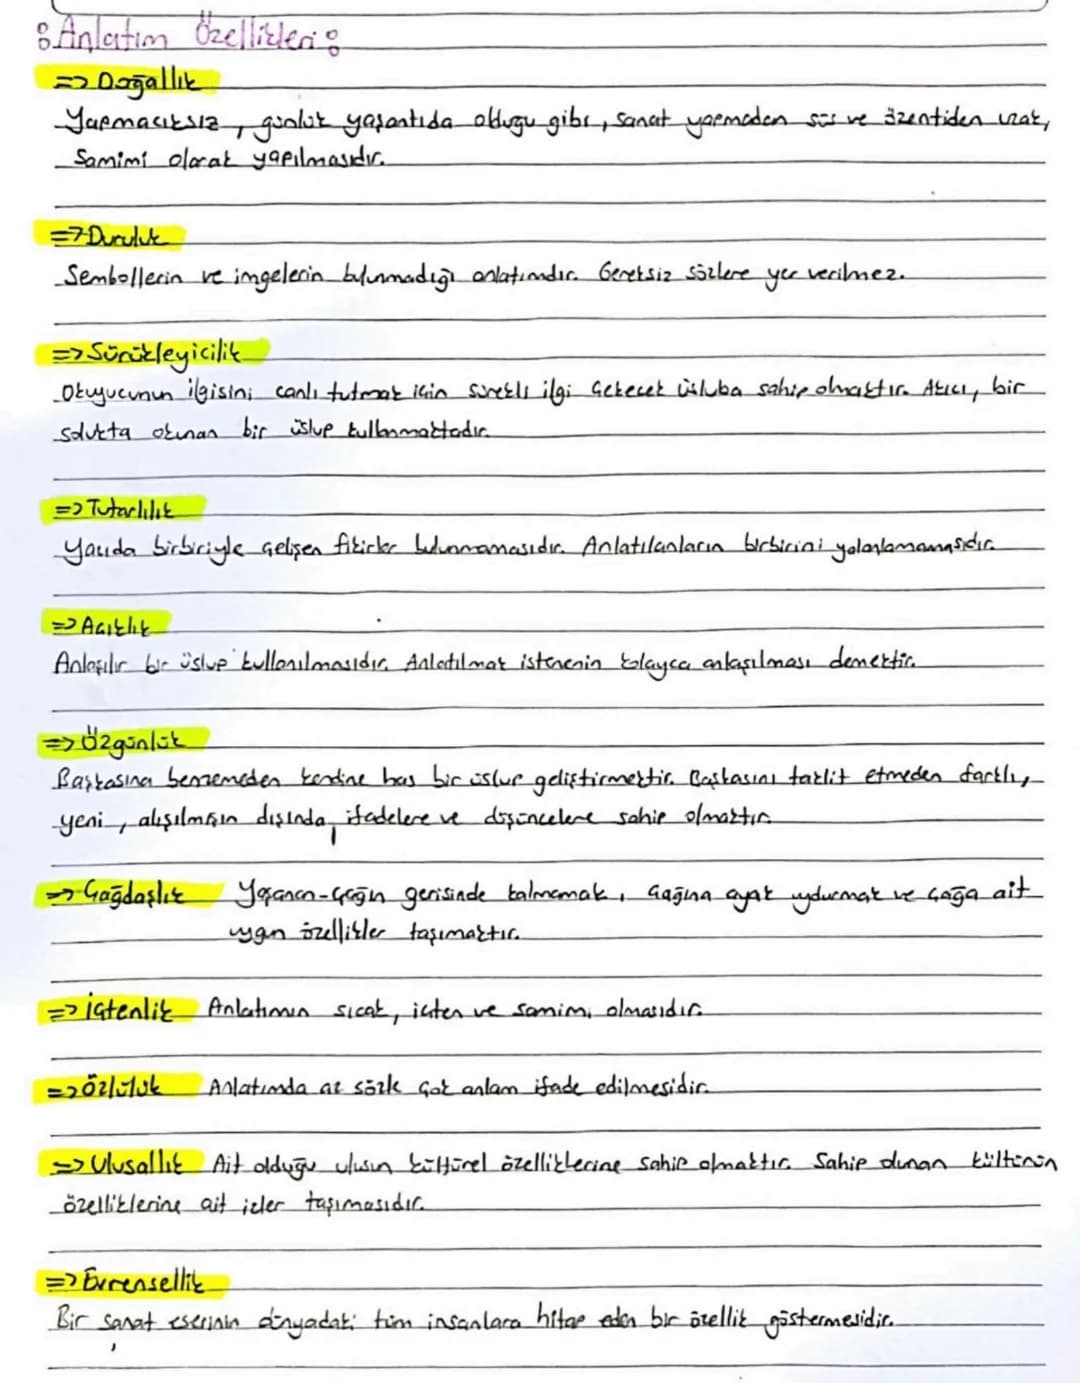 Anlatım Özellikleri:
=> Doğallık
Yapmacıksız, günlük yaşantıda olduğu gibi, sanat yapmadan süs ve özentiden uzak,
Samimi olarak yapılmasıdır.
=> Duruluk
Sembollerin ve imgelerin bulunmadığı anlatımdır. Gereksiz sözlere yer verilmez.
=> Sürükleyicilik
Okuyucunun ilgisini canlı tutmak için sürekli ilgi çekecek üsluba sahip olmaktır. Akıcı, bir
solukta okunan bir üslup kullanmaktadır.
=> Tutarlılık
Yazıda birbiriyle çelişen fikirler bulunmamasıdır. Anlatılanların birbirini yalanlamamasıdır.
=> Açıklık
Anlaşılır bir üslup kullanılmasıdır. Anlatılmak istenenin kolayca anlaşılması demektir.
=> Özgünlük
Başkasına benzemeden kendine has bir üslup geliştirmektir. Başkasını taklit etmeden farklı,
yeni, alışılmışın dışında, ifadelere ve düşüncelere sahip olmaktır.
=> Çağdaşlık Yaşanan çağın gerisinde kalmamak, çağına ayak uydurmak ve çağa ait
uygun özellikler taşımaktır.
=> İçtenlik Anlatımın sıcak, içten ve samimi olmasıdır.
=> Özlülük Anlatımda az sözle çok anlam ifade edilmesidir.
=> Ulusallık Ait olduğu ulusun kültürel özelliklerine sahip olmaktır. Sahip olunan kültürün
özelliklerine ait izler taşımasıdır.
=> Evrensellik
Bir sanat eserinin dünyadaki tüm insanlara hitap eden bir özellik göstermesidir.